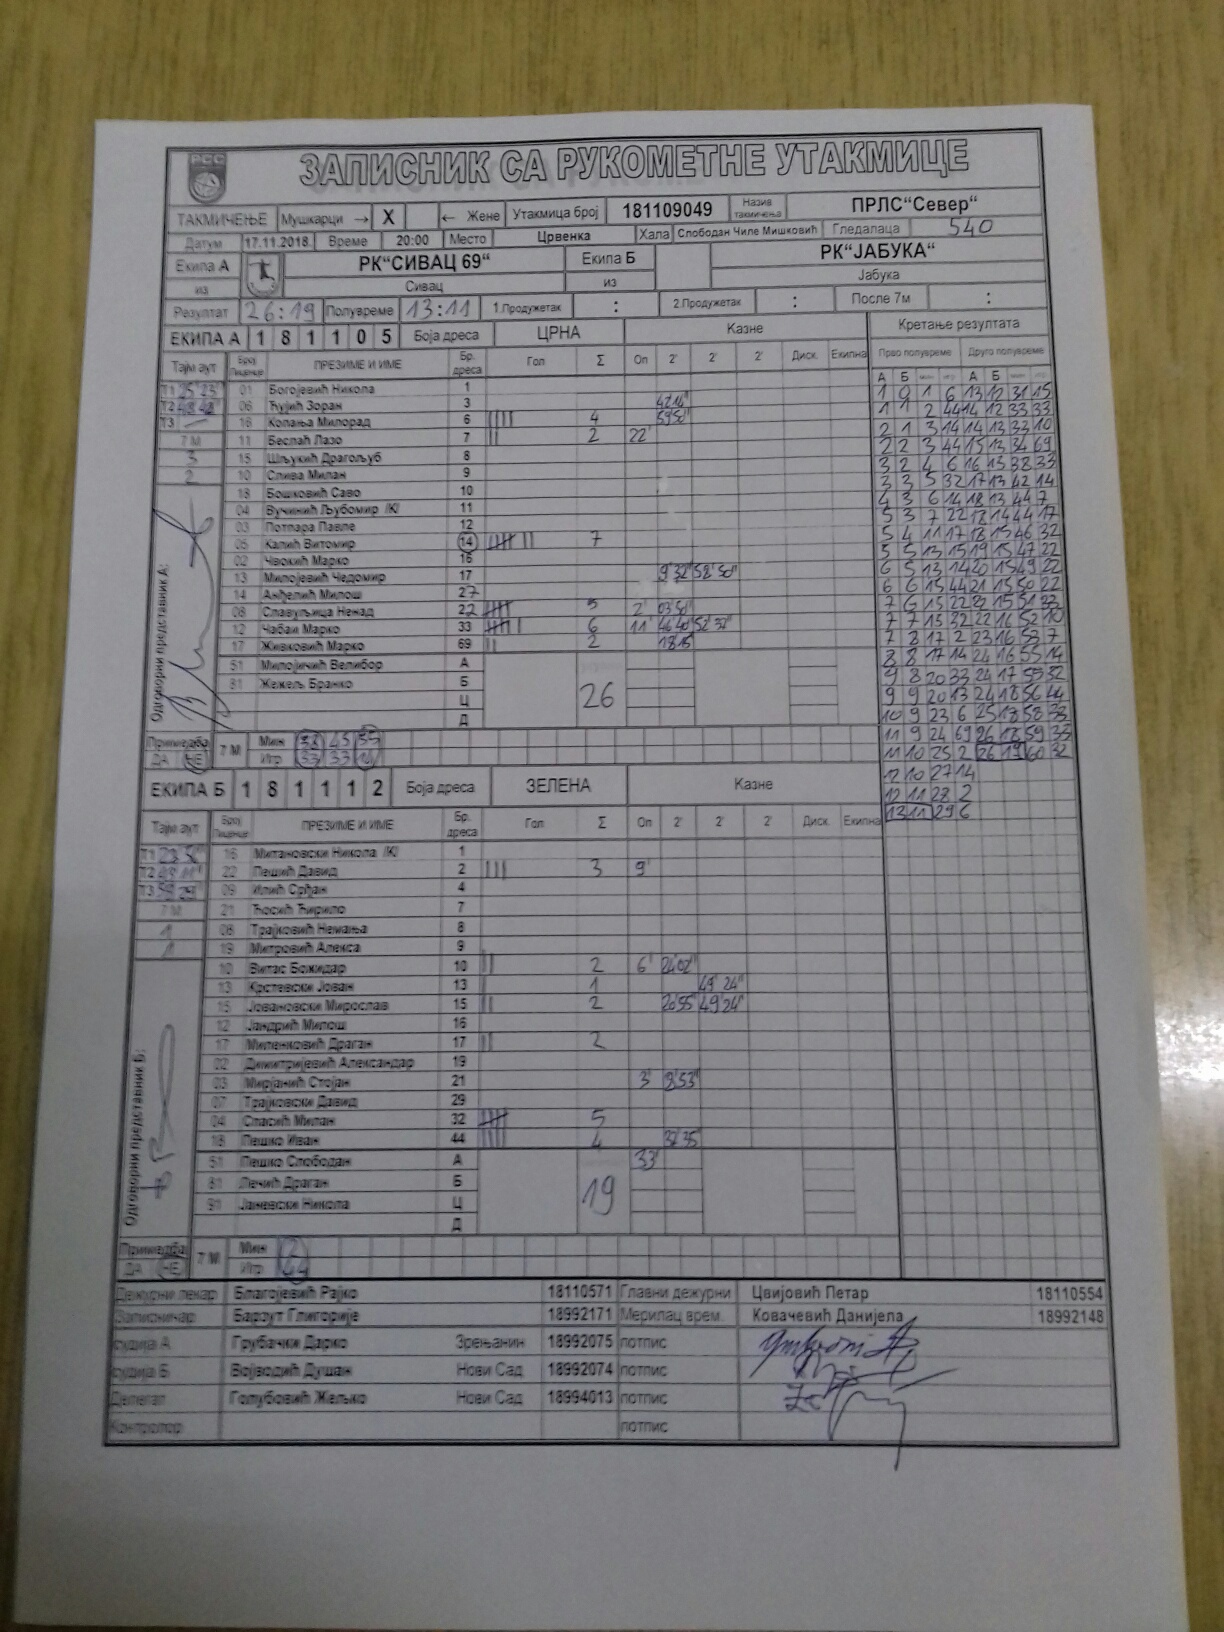 РСС
ЗАПИСНИК СА РУКОМЕТНЕ УТАКМИЦЕ
ТАКМИЧЕЊЕ Мушкарци → X ← Жене Утакмица број 181109049 Назив такмичења ПРЛС“Север“
Датум 17.11.2018. Време 20:00 Место Црвенка Хала Слободан Чиле Мишковић Гледалаца 540
Екипа А РК“СИВАЦ 69“ Екипа Б РК“ЈАБУКА“
из Сивац из Јабука
Резултат 26:19 Полувреме 13:11 1.Продужетак : 2.Продужетак : После 7м :
ЕКИПА А 1 8 1 1 0 5 Боја дреса ЦРНА Казне Кретање резултата
Тајм аут Број Лиценце ПРЕЗИМЕ И ИМЕ Бр. дреса Гол Σ Оп 2' 2' 2' Диск. Екипна Прво полувреме Друго полувреме
А Б мин игр А Б мин игр
Т1 25 23 01 Богојевић Никола 1
Т2 06 Ћујић Зоран 3
Т3 16 Копања Милорад 6 4
7 М 11 Беслаћ Лазо 7 2 22'
3 15 Шљукић Драгољуб 8
2 10 Слива Милан 9
18 Бошковић Саво 10
04 Вучинић Љубомир /К/ 11
03 Потпара Павле 12
05 Калић Витомир 14 7
02 Чвокић Марко 16
13 Милојевић Чедомир 17 9'32" 52'50"
14 Анђелић Милош 27
08 Славуљица Ненад 22 5 2'
12 Чабаи Марко 33 6 11' 46 40 52'37"
17 Живковић Марко 69 2 18 15
51 Милојичић Велибор А
81 Жежељ Бранко Б 26
Ц
Д
Одговорни представник А:
Примедба ДА НЕ 7 М Мин 38 45 55
Игр 33 33 14
1 0 1 6 13 12 31 15
1 1 2 44 14 12 33 33
2 1 3 14 14 13 33 10
2 2 3 44 15 13 34 69
3 2 4 6 16 13 38 33
3 3 5 32 17 13 42 14
4 3 6 14 18 13 44 7
5 3 7 22 18 14 44 17
5 4 11 17 18 15 46 32
5 5 13 15 19 15 47 22
6 5 13 14 20 15 49 22
6 6 15 44 21 15 50 22
7 6 15 22 22 15 51 33
7 7 15 32 22 16 52 10
7 8 17 2 23 16 53 7
8 8 17 14 24 16 55 14
9 8 20 33 24 17 55 32
9 9 20 13 24 18 56 44
10 9 23 6 25 18 58 33
11 9 24 69 26 18 59 33
11 10 25 2 26 19 60 32
12 10 27 14
12 11 28 2
13 11 29 6
ЕКИПА Б 1 8 1 1 1 2 Боја дреса ЗЕЛЕНА Казне
Тајм аут Број Лиценце ПРЕЗИМЕ И ИМЕ Бр. дреса Гол Σ Оп 2' 2' 2' Диск. Екипна
Т1 16 Митановски Никола /К/ 1
Т2 22 Пешић Давид 2 3 9'
Т3 09 Илић Срђан 4
7 М 21 Ћосић Ћирило 7
1 06 Трајковић Немања 8
1 19 Митровић Алекса 9
10 Витас Божидар 10 2 6' 24'02"
13 Крстевски Јован 13 1 49'24"
15 Јовановски Мирослав 15 2 20'55" 49'24"
12 Јандрић Милош 16
17 Миленковић Драган 17 2
02 Димитријевић Александар 19
03 Мирјанић Стојан 21 3' 9'53"
07 Трајковски Давид 29
04 Спасић Милан 32 5
18 Пешко Иван 44 4 32'35"
51 Пешко Слободан А 33'
81 Лечић Драган Б 19
91 Јаневски Никола Ц
Д
Одговорни представник Б:
Примедба ДА НЕ 7 М Мин 2
Игр 44
Дежурни лекар Благојевић Рајко 18110571 Главни дежурни Цвијовић Петар 18110554
Записничар Барзут Глигорије 18992171 Мерилац врем. Ковачевић Данијела 18992148
судија А Грубачки Дарко Зрењанин 18992075 потпис
судија Б Војводић Душан Нови Сад 18992074 потпис
Делегат Голубовић Жељко Нови Сад 18994013 потпис
Контролор потпис